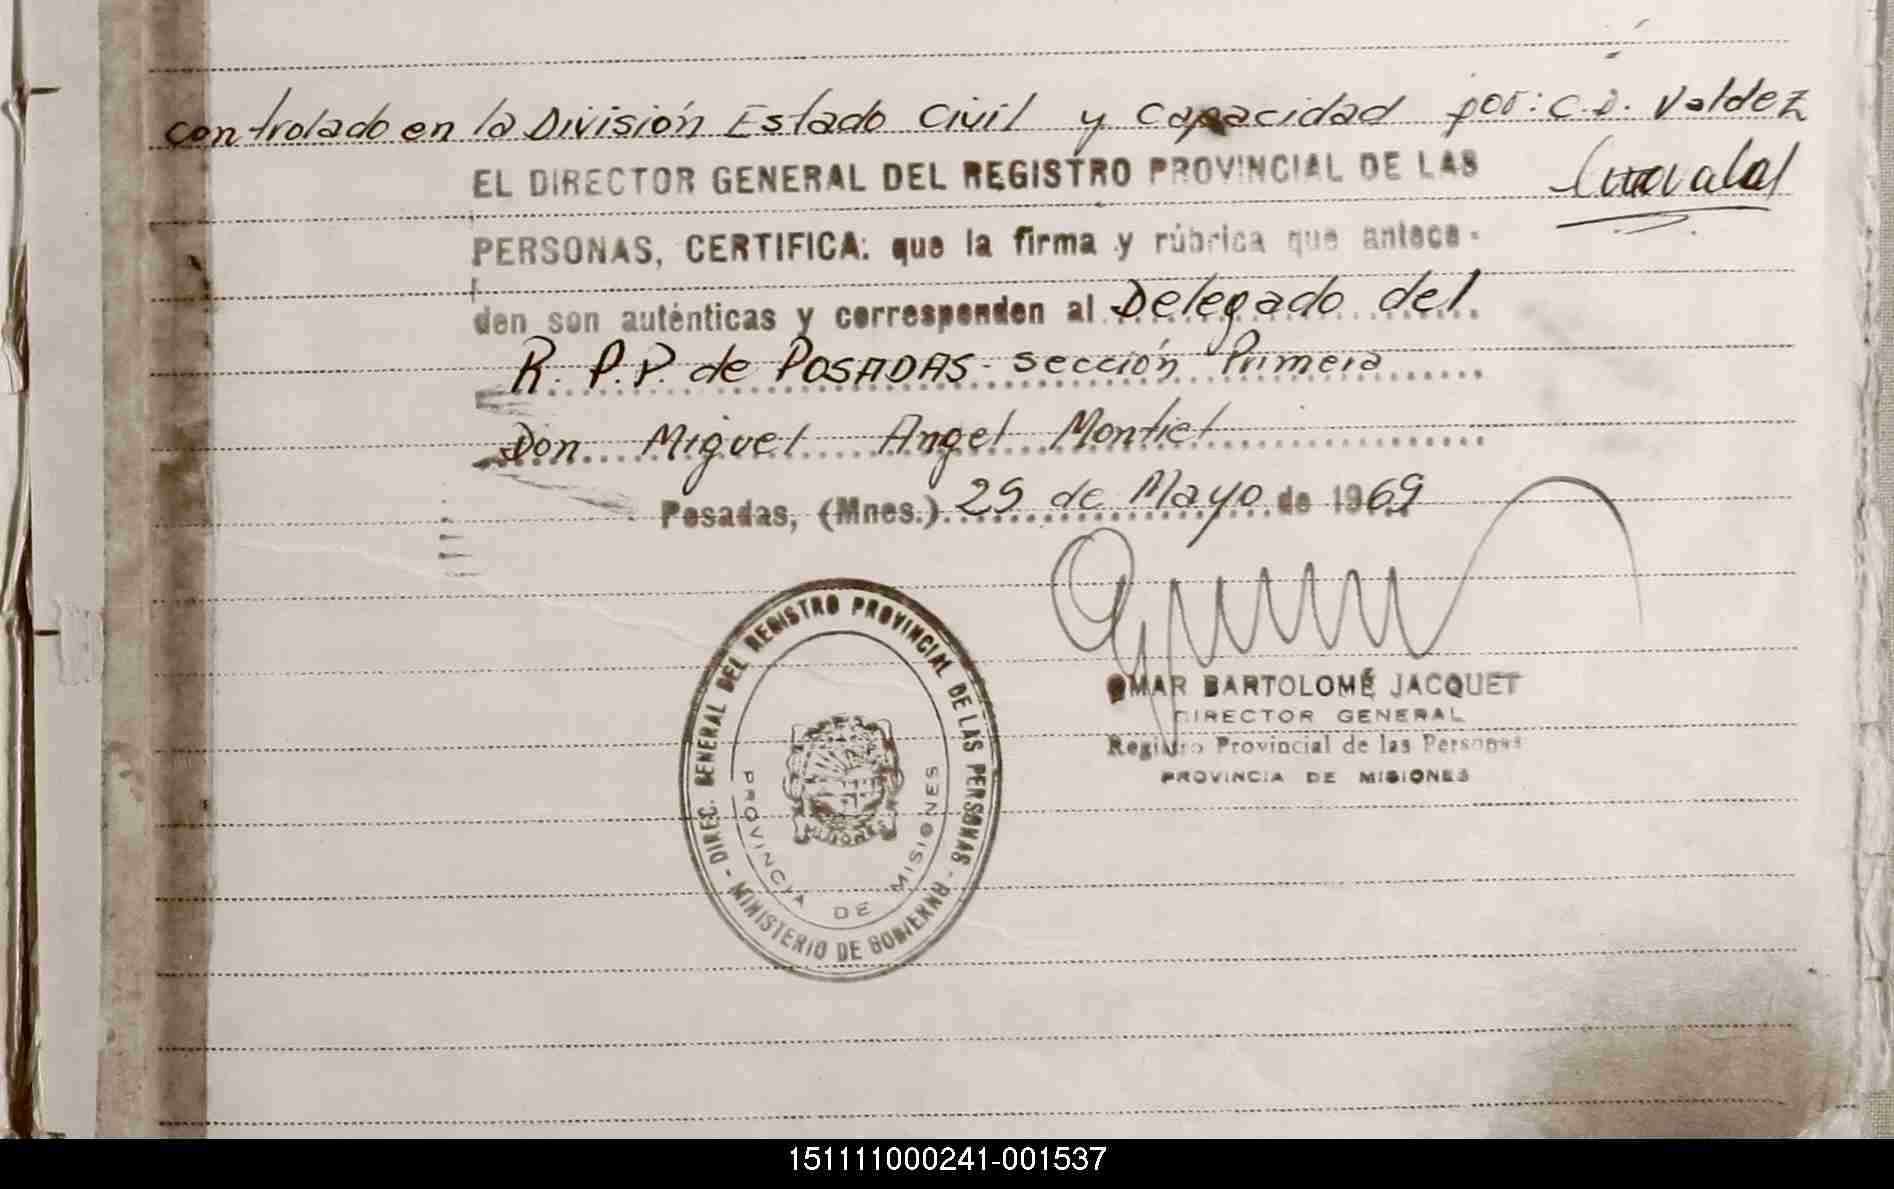 controlado en la División Estado Civil y Capacidad por: C.D. Valdez
EL DIRECTOR GENERAL DEL REGISTRO PROVINCIAL DE LAS
PERSONAS, CERTIFICA: que la firma y rúbrica que antece-
den son auténticas y corresponden al Delegado del
R.P.P. de POSADAS - sección Primera
Don Miguel Angel Montiel
Posadas, (Mnes.) 29 de Mayo de 1969
OMAR BARTOLOMÉ JACQUET
DIRECTOR GENERAL
Registro Provincial de las Personas
PROVINCIA DE MISIONES
DIREC. GENERAL DEL REGISTRO PROVINCIAL DE LAS PERSONAS - MINISTERIO DE GOBIERNO -
PROVINCIA DE MISIONES
MISIONES
151111000241-001537